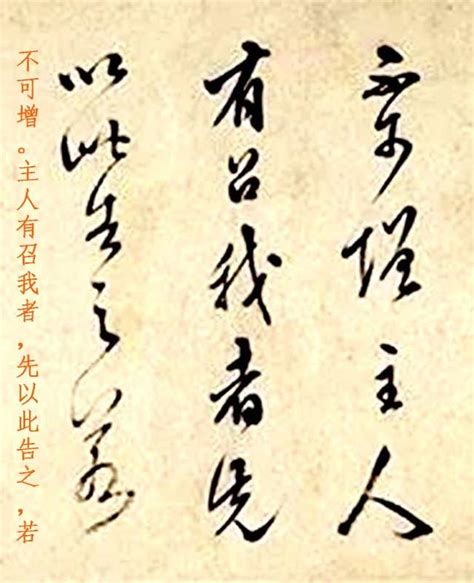 不可增主人
有召我者先
以此告之若
不可增。主人有召我者,先以此告之,若